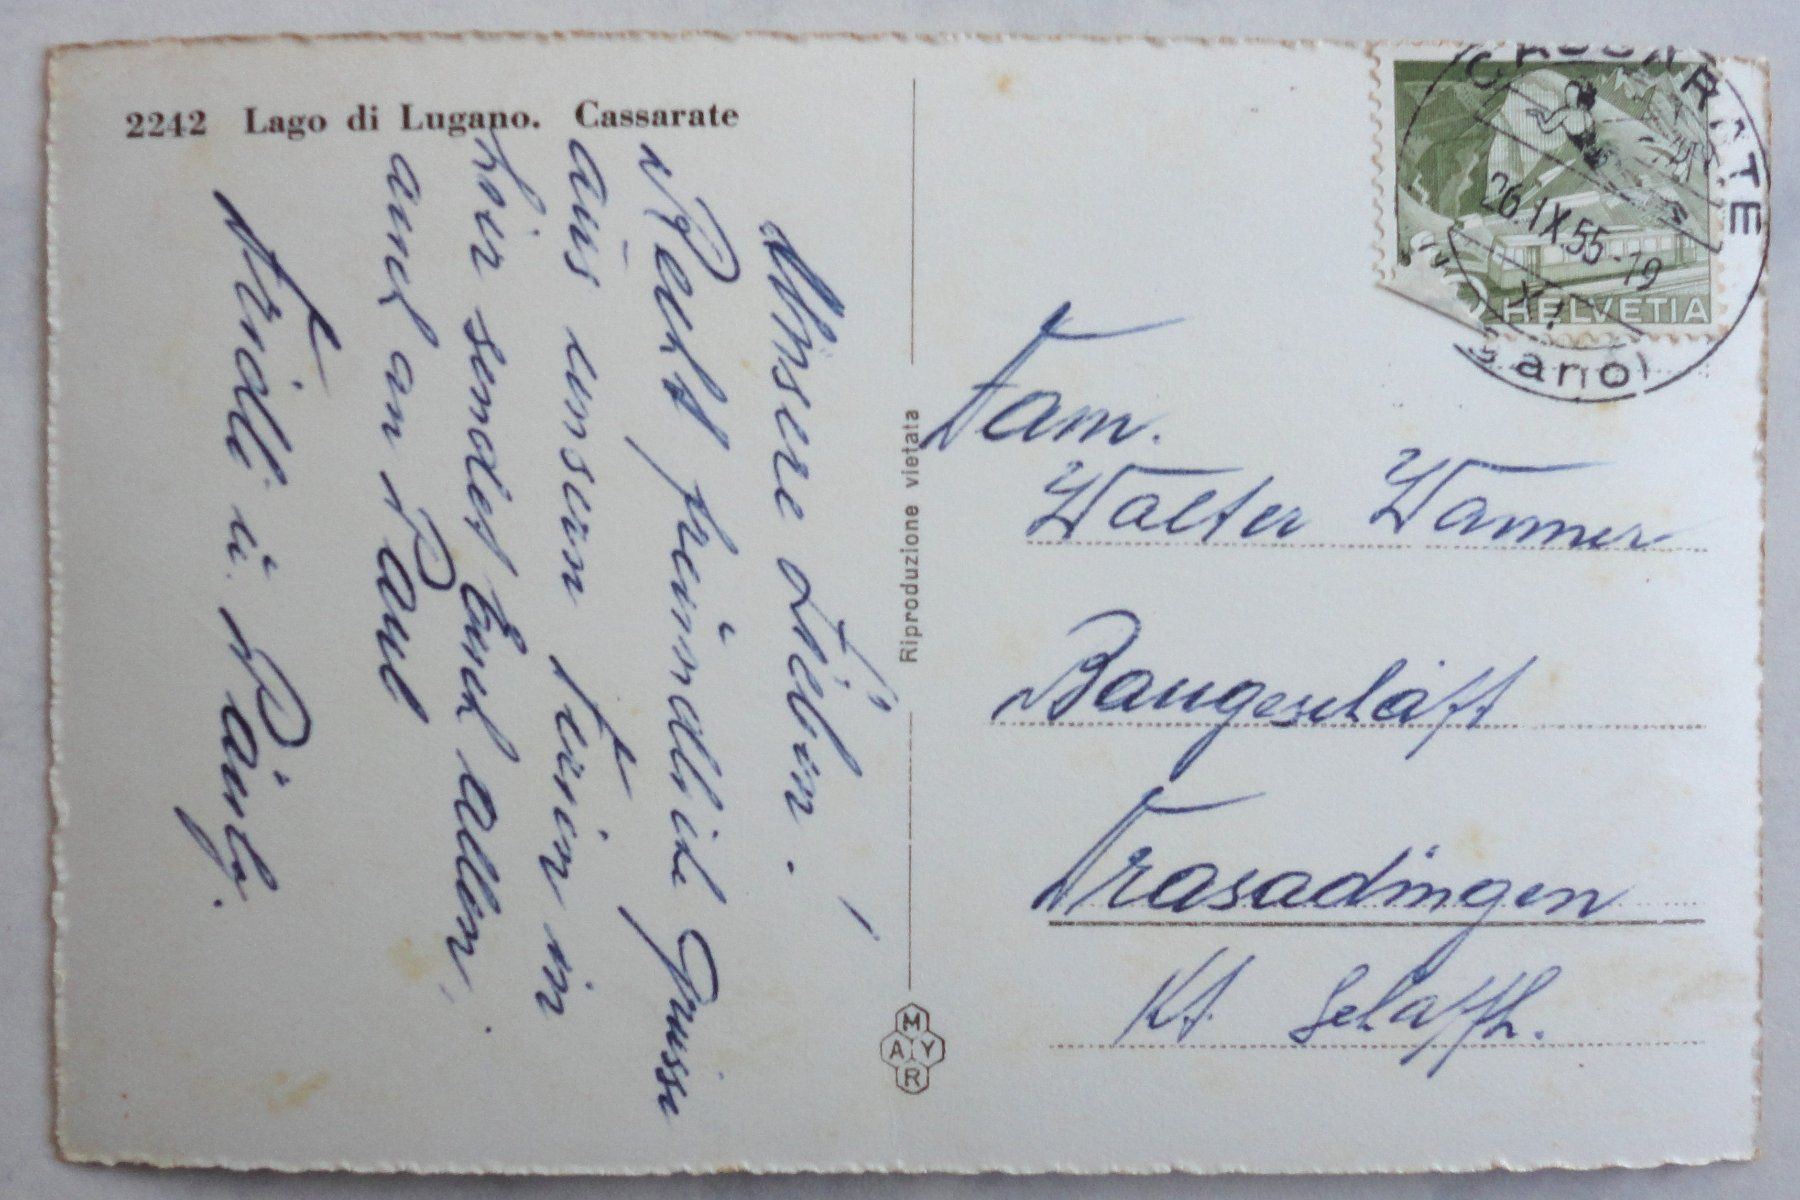 2242 Lago di Lugano. Cassarate
Unsere Lieben!
Recht freundlich Grüsse
aus unsern Ferien in
hir sendet Euch allen,
auch an Paul
Fridli u.
Riproduzione vietata
MAYR
CASSARATE
26.IX.55-19
HELVETIA
Fam.
Walter Wanner
Baugeschäft
Trasadingen
Kt. Schaffh.